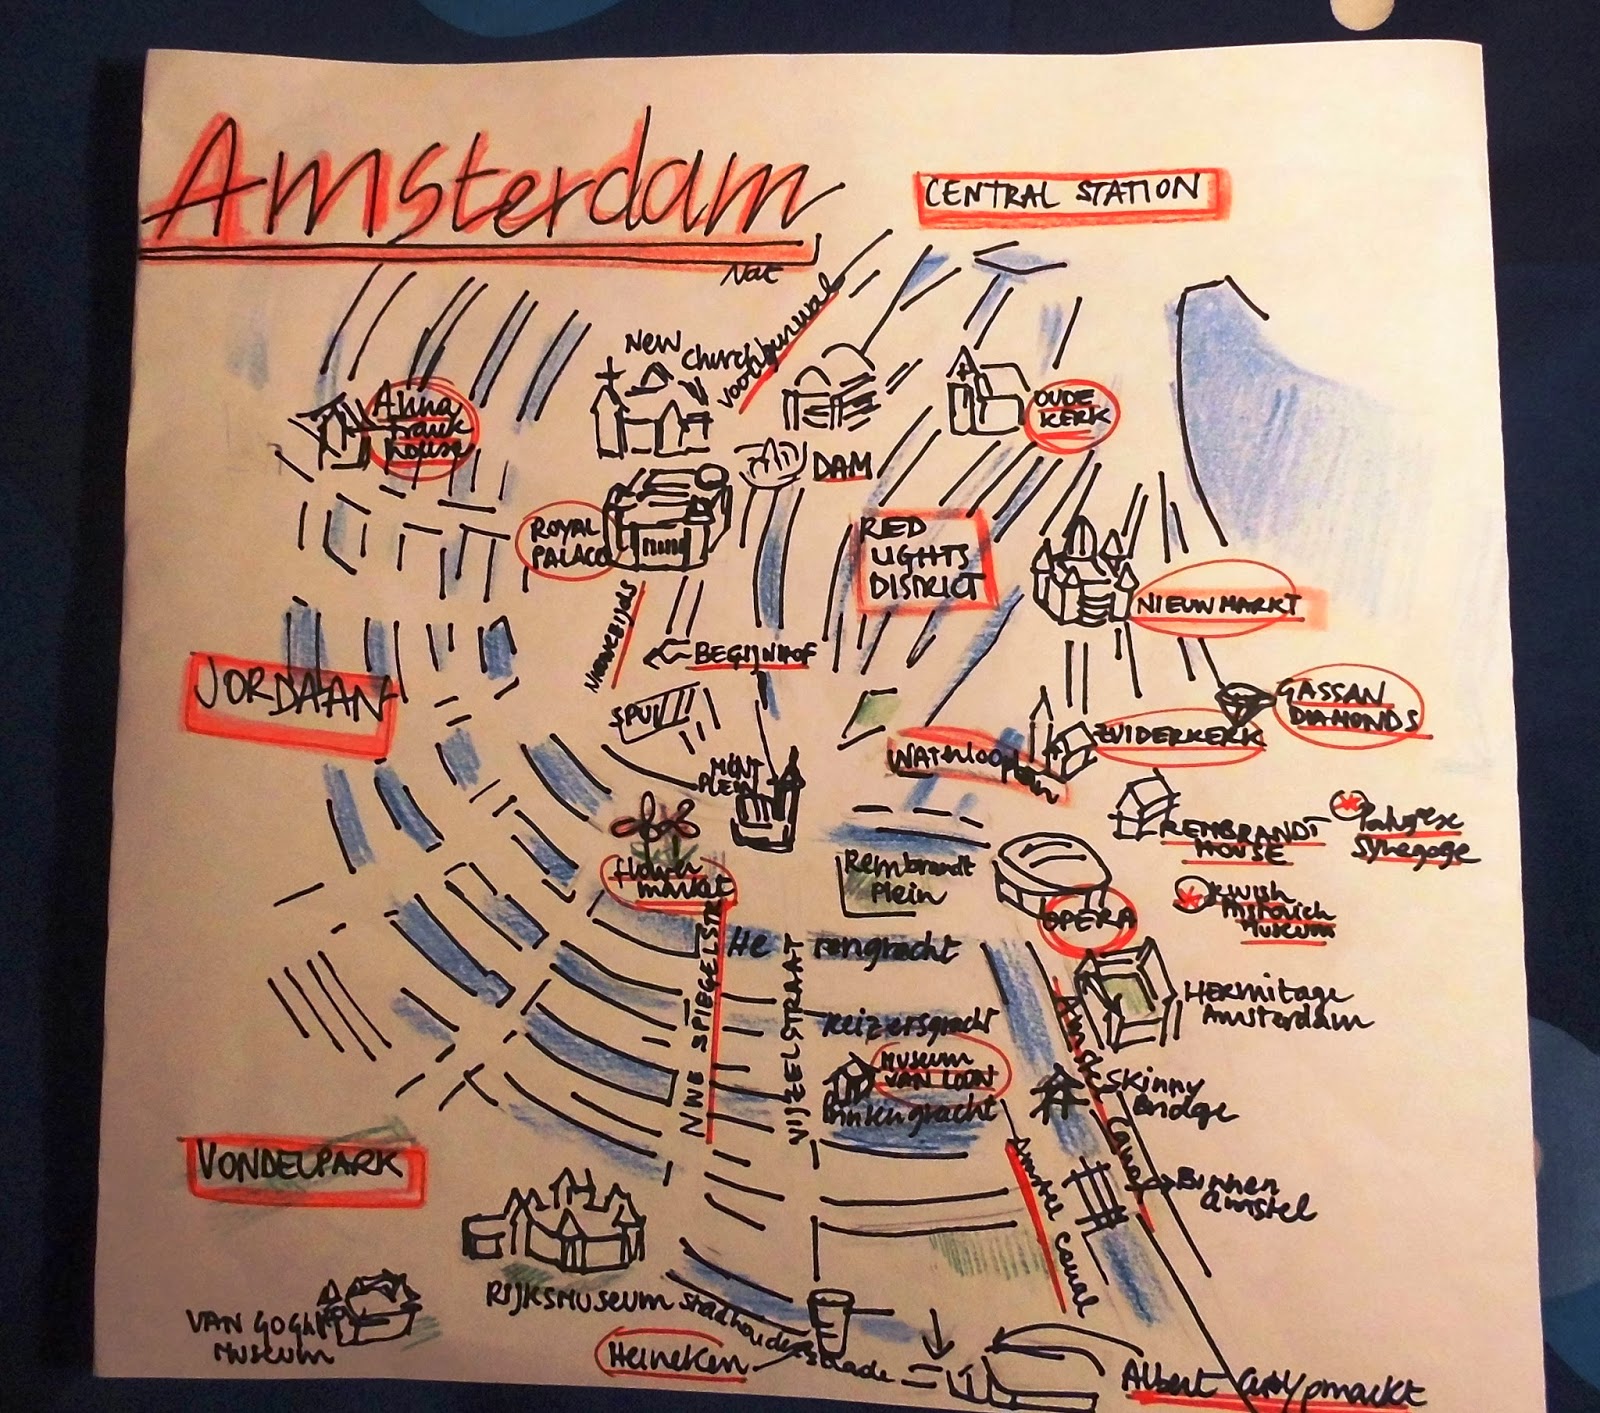 Amsterdam
CENTRAL STATION
New
Church
voorburwal
Anna
Frank
house
OUDE
KERK
DAM
ROYAL
PALACE
RED
LIGHTS
DISTRICT
NIEUWMARKT
BEGIJNHOF
JORDAAN
SPUI
GASSAN
DIAMONDS
ZUIDERKERK
WATERLOOplein
MINT
PLEIN
flower
market
Rembrandt
Plein
REMBRANDT
HOUSE
Synegoge
OPERA
Museum
NWE SPIEGELSTR
Herengracht
VIJZELSTRAAT
Keizersgracht
HERmitage
Amsterdam
MUSEUM
VAN LOON
Skinny
Bridge
Amstel Canal
VONDELPARK
Binnen
amstel
Amstel canal
RIJKSMUSEUM
VAN GOGH
MUSEUM
Heineken
Albert